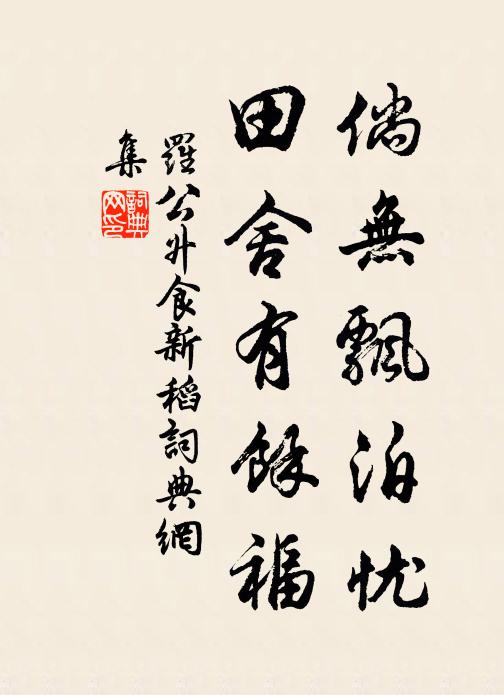 倘無飄泊忧
田舍有餘福
羅公升食新稻詞典網
集
詞典網印